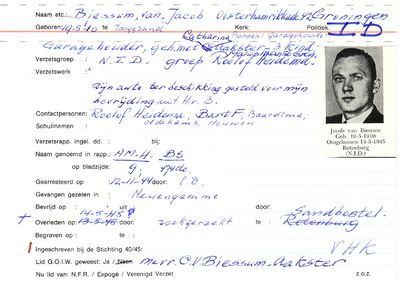 Naam etc.: Biessum, van, Jacob Oosterhamrikkade 42 Groningen
Geboren: 19-5-'10 te: Hoogezand Kerk: Politiek: I.D.
Catharina Beroep: garagehouder
Garagehouder, geh. met Aakster - 3 kind.
Verzetsgroep : N.I.D. groep Roelof Heidema.
Verzetswerk :
Zijn auto ter beschikking gesteld voor mijn
bevrijding uit Hr. B.
Contactpersonen: Roelof Heidema, Bart F, Baardima,
Schuilnamen : Oldenhamh, Houwen
Jacob van Biessum
Geb. 19-5-1910
Omgekomen 13-5-1945
Rotenburg
(N.I.D.)
Verzetsrapp. ingel. dd.: bij:
Naam genoemd in rapp.: AM-H. BS
op bladzijde: 9, 4
Gearresteerd op : 12-11-'44 door: S.D.
Gevangen gezeten in : Neuengamme
Bevrijd op : uit: door:
14-5-'45 Sandbostel
+ Overleden op : 13-5-45 door: zoekgeraakt te: Rotenburg
Begraven op : te:
Ingeschreven bij de Stichting 40/45: VHK
Lid G.O.I.W. geweest: Ja / Neen mevr. C.V. Biessum-Aakster
Nu lid van: N.F.R. / Expogé / Verenigd Verzet z.o.z.